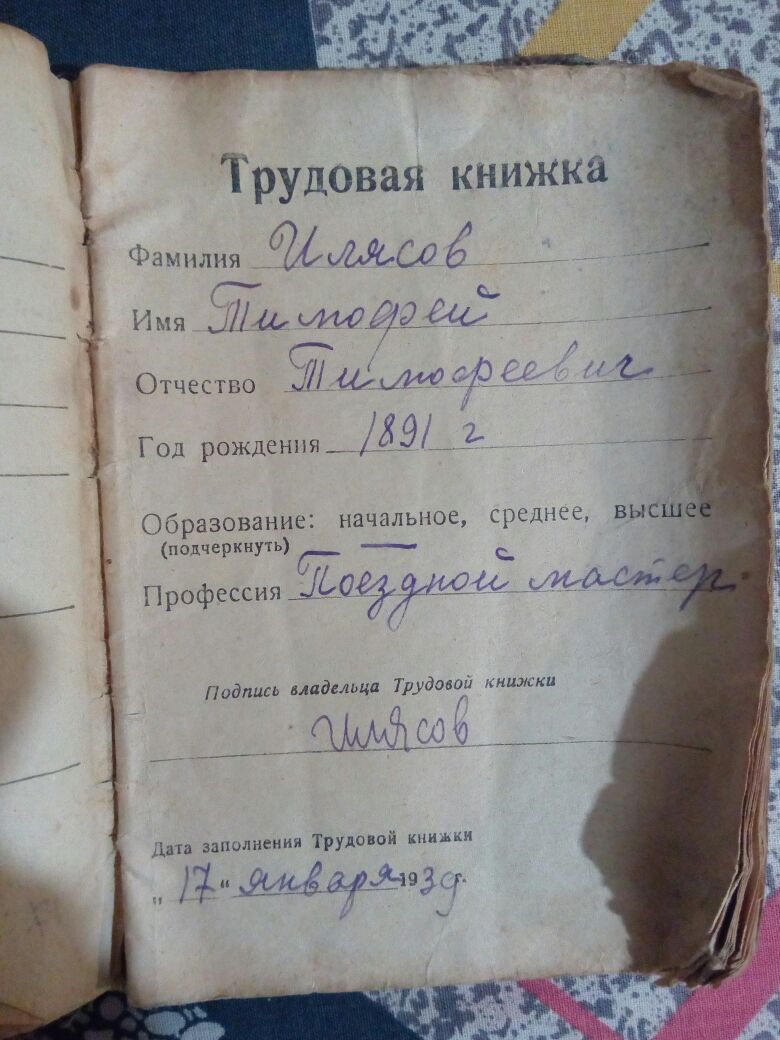 Трудовая книжка
Фамилия Илясов
Имя Тимофей
Отчество Тимофеевич
Год рождения 1891 г
Образование: начальное, среднее, высшее
(подчеркнуть)
Профессия Поездной мастер
Подпись владельца Трудовой книжки
Илясов
Дата заполнения Трудовой книжки
„ 17 “ января 1939 г.